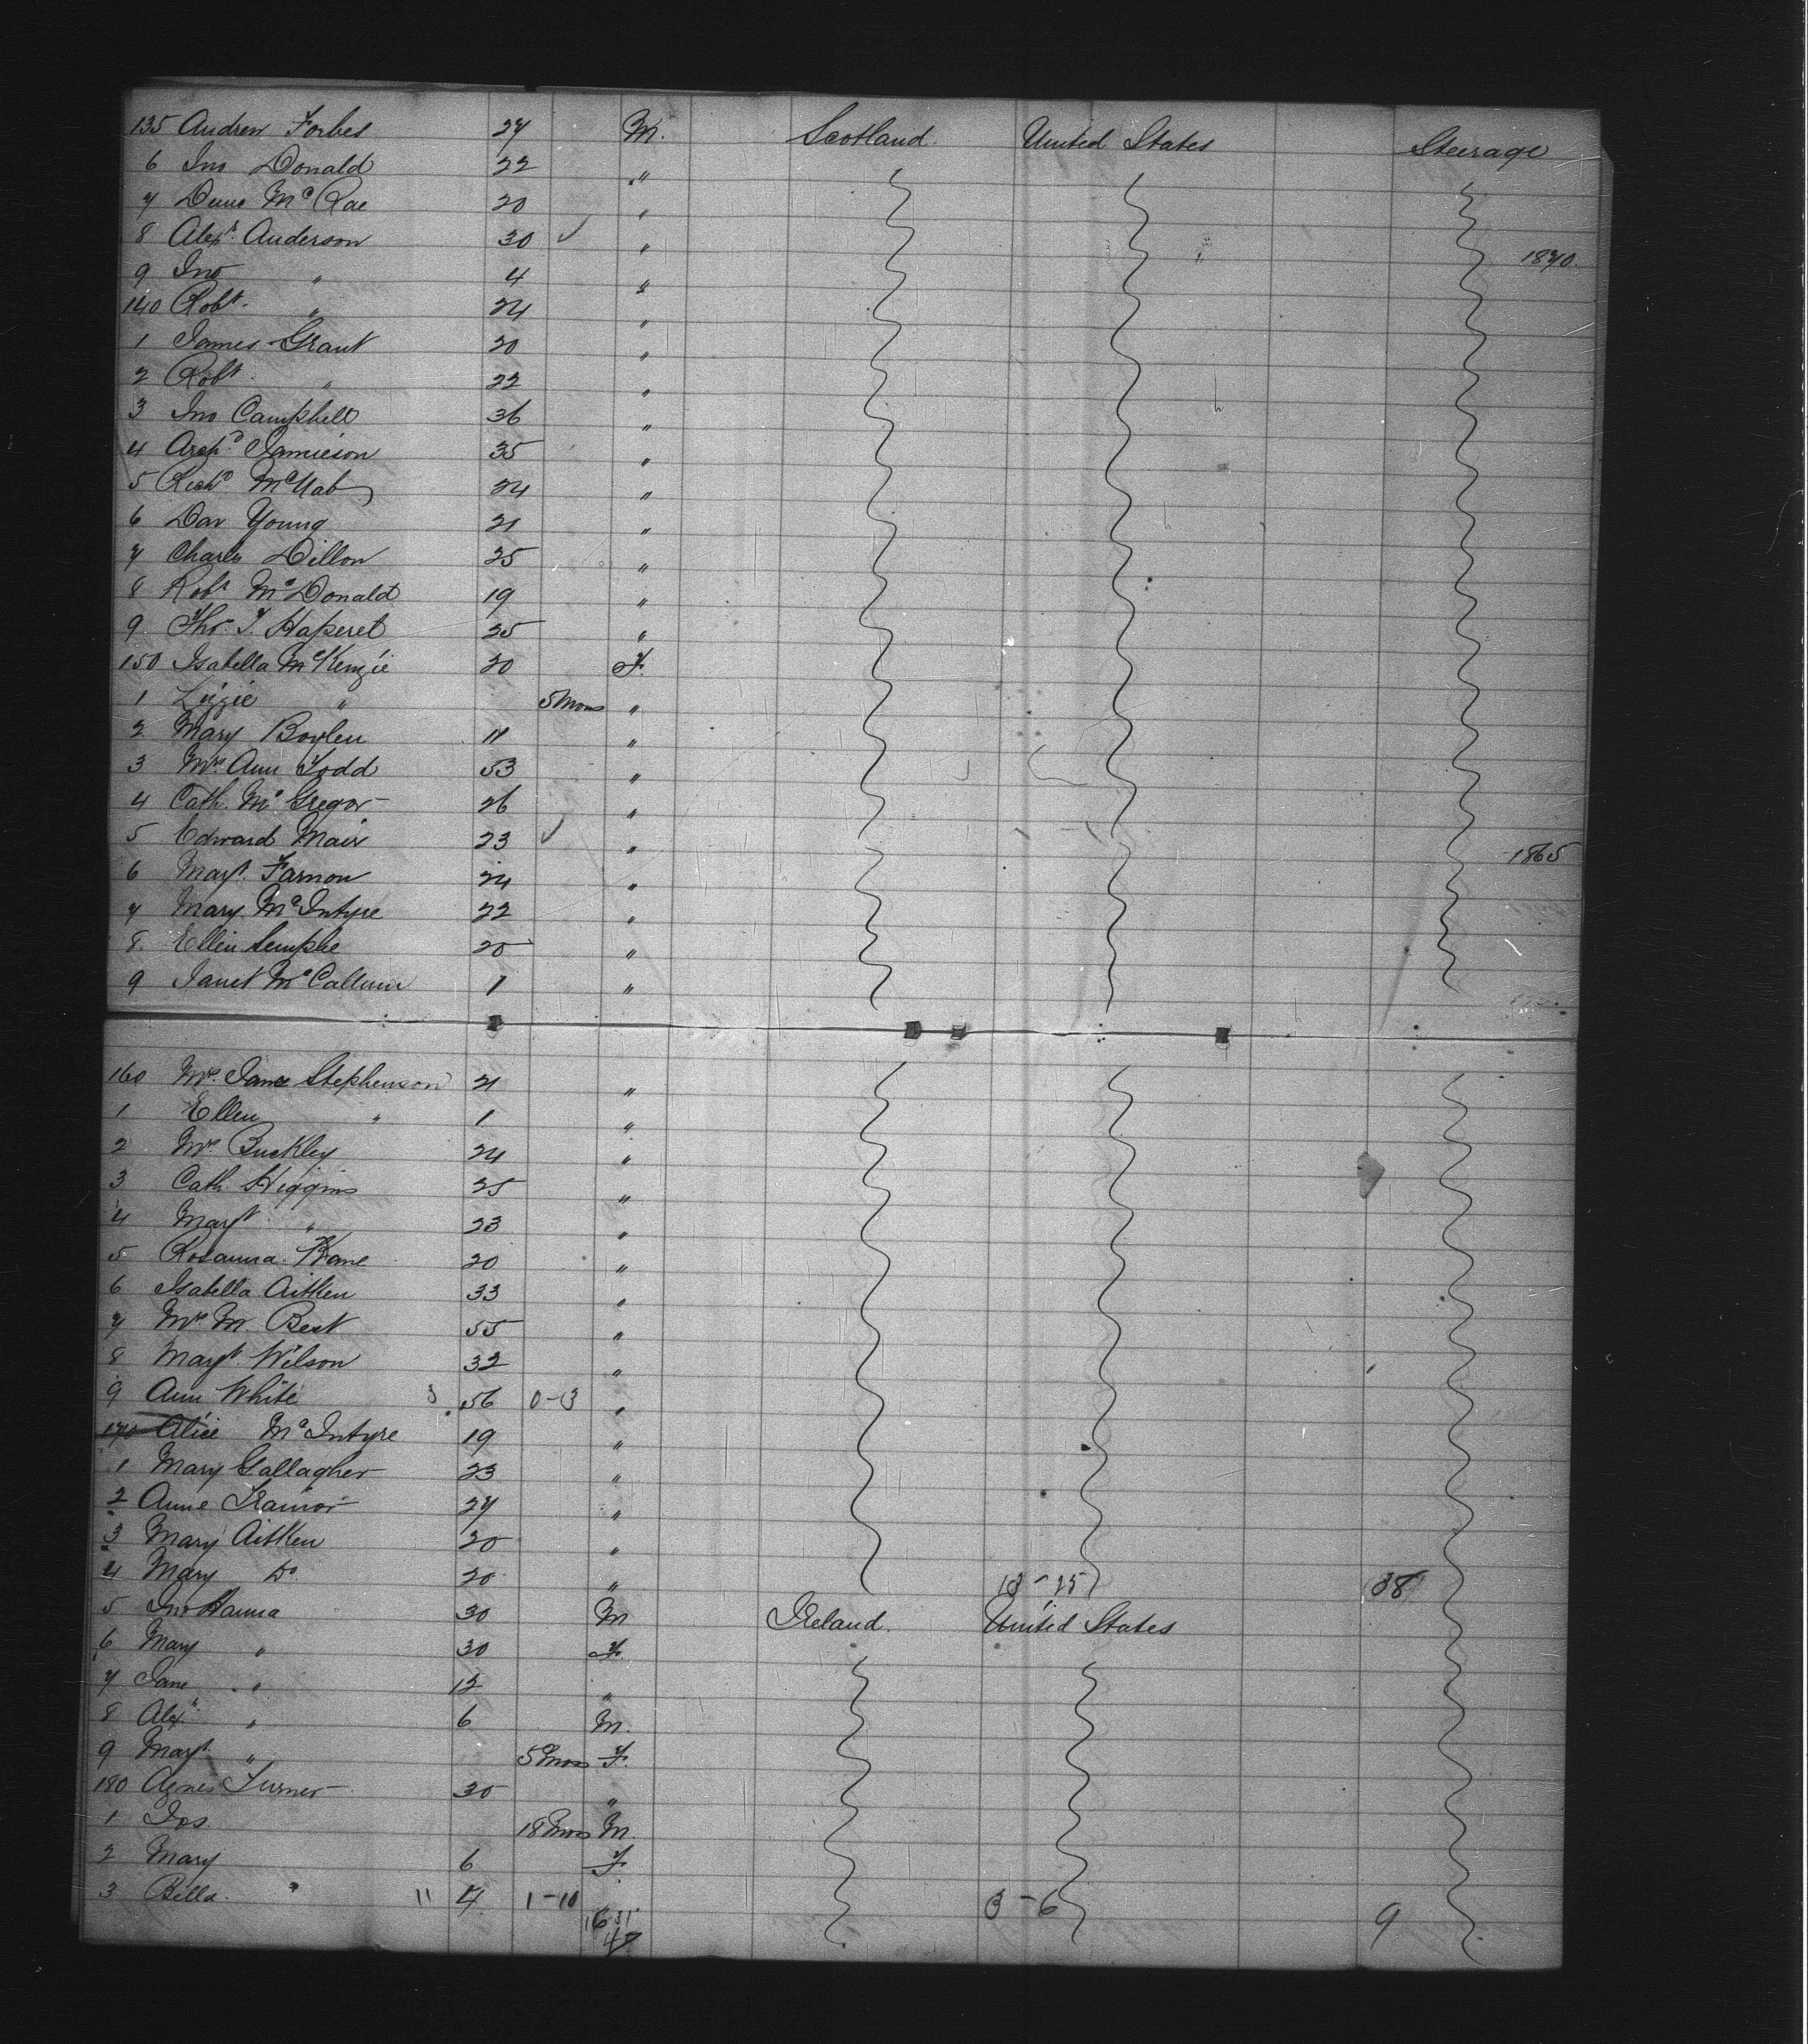 135 Andrew Forbes 27 M. Scotland. United States Steerage
6 Jno Donald 22 "
7 Dunc McRae 20 "
8 Alexr. Anderson 30 ✓ " 1870.
9 Jno " 4 "
140 Robt. " 24 "
1 James Grant 20 "
2 Robt " 22 "
3 Jno Campbell 36 "
4 Archd. Jamieson 35 "
5 Richd McNab 24 "
6 Dav Young 21 "
7 Charles Dillon 25 "
8 Robt McDonald 19 "
9 Thos. T. 25 "
150 Isabella McKenzie 20 F.
1 Lizzie " 5 Mons "
2 Mary Boylen 11 "
3 Mrs Ann Todd 53 "
4 Cath. McGregor 26 "
5 Edward Mair 23 ✓ " 1865
6 Margt. Farnon 24 "
7 Mary McIntyre 22 "
8. Ellen 20 "
9 Janet McCallum 1 "
160 Mrs. Jane Stephenson 21 "
1 Ellen " 1 "
2 Mrs Buckley 24 "
3 Cath. Higgins 25 "
4 Margt " 23 "
5 Rosanna Kane 20 "
6 Isabella Aitken 33 "
7 Mrs M. Best 55 "
8 Margt. Wilson 32 "
9 Ann White 3 56 0-3 "
170 Alice McIntyre 19 "
1 Mary Gallagher 23 "
2 Anne 27 "
3 Mary Aitken 20 "
4 Mary Do. 20 " 13-25 38
5 Jno Hanna 30 M Ireland. United States
6 Mary " 30 F.
7 Jane " 12 "
8 Alexr " 6 M.
9 Margt. " 5 Mos F.
180 Agnes Turner 30 "
1 Jos. 18 Mos M.
2 Mary 6 F.
3 Bella. " 11 4 1-10 " 3-6 9
16 31
47